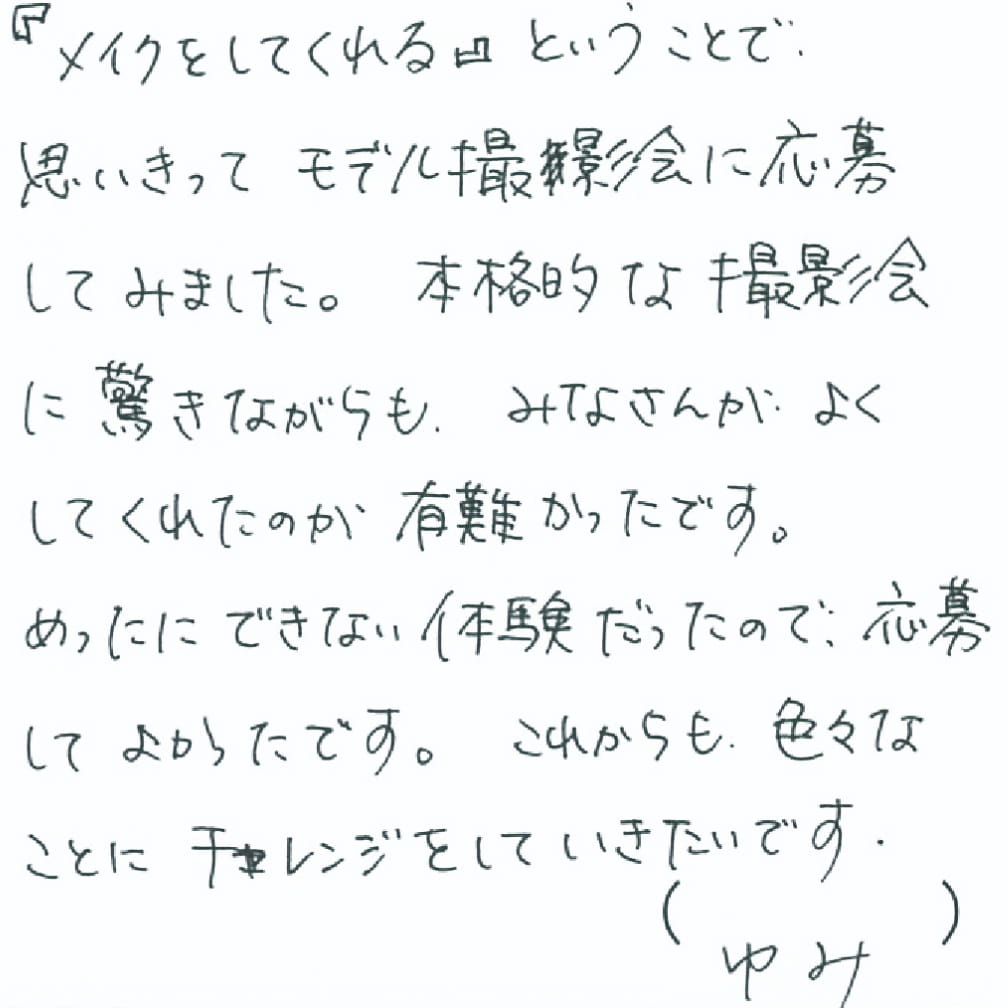 『メイクをしてくれる』ということで、
思いきって モデル撮影会に応募
してみました。 本格的な撮影会
に驚きながらも、みなさんが よく
してくれたのが 有難かったです。
めったに できない体験だったので、応募
して よかったです。 これからも、色々な
ことに チャレンジをしていきたいです.
( ゆみ )